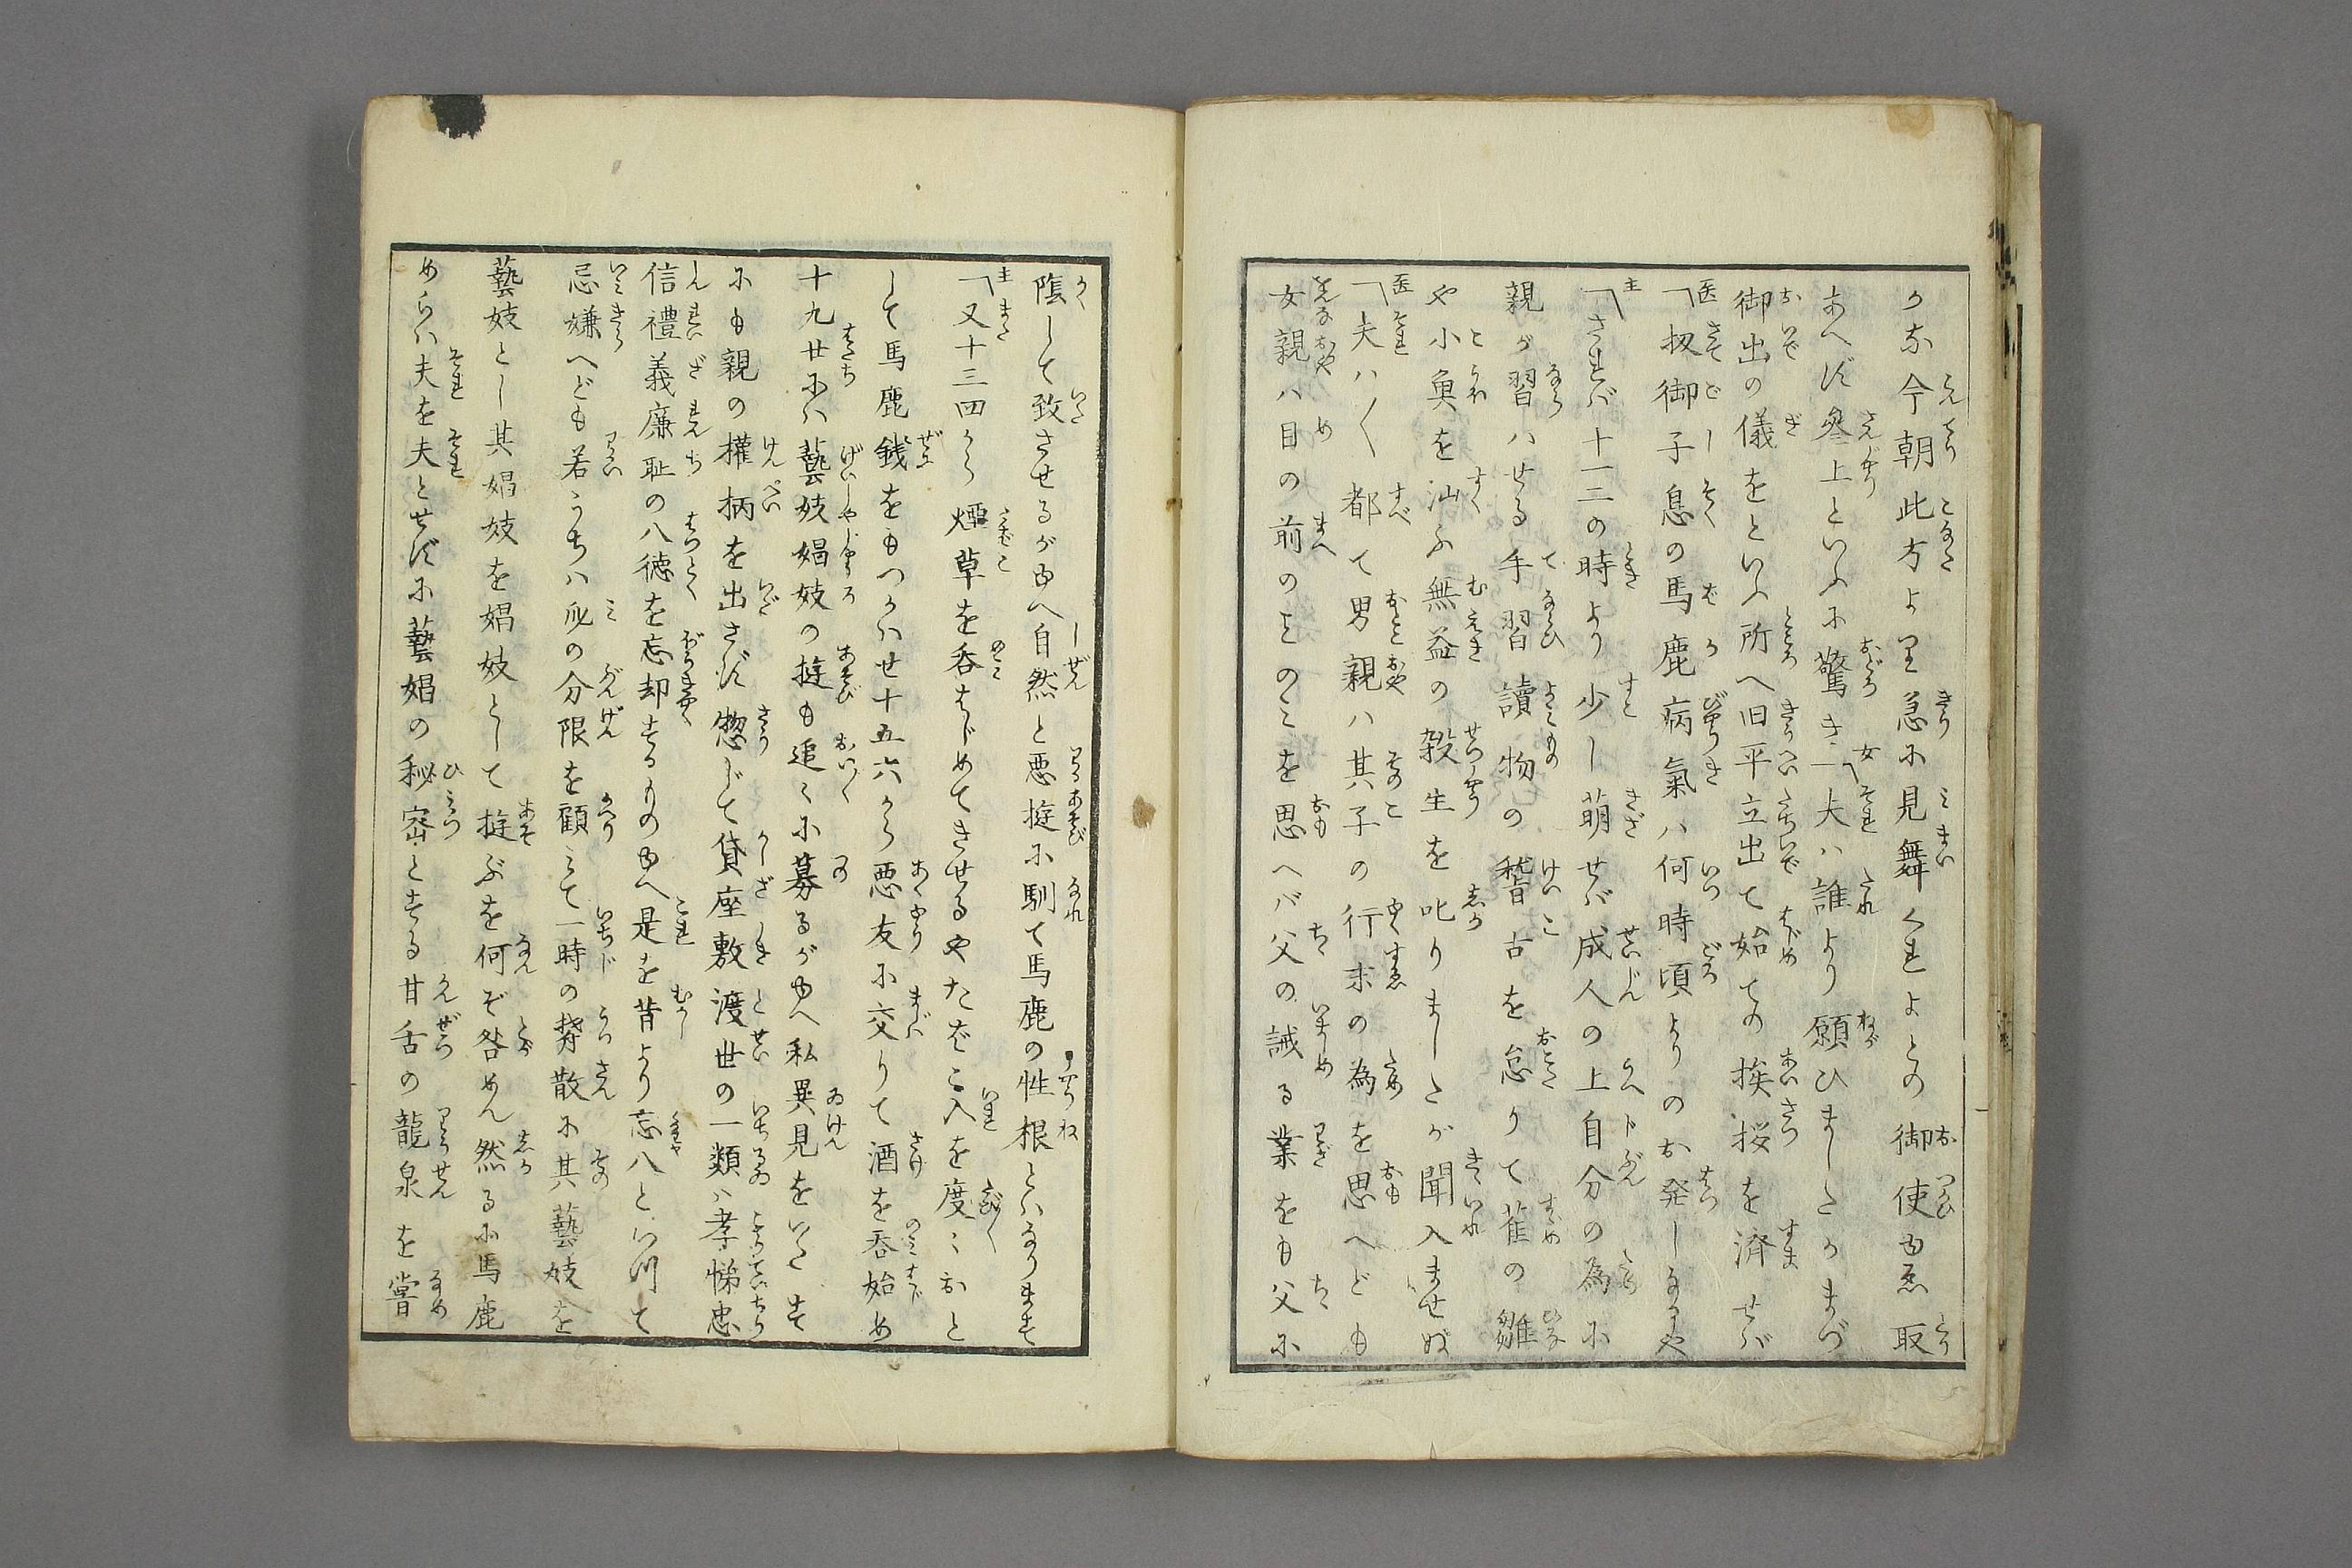 かな今朝此方より急に見舞くれよとの御使ゆゑ取
あへず参上といふに驚き「夫ハ誰より願ひましたかまづ
御出の儀をといふ所へ旧平立出て始ての挨拶を済せバ
医「扨御子息の馬鹿病氣ハ何時頃よりのお発しなるや
主「されバ十一二の時より少し萌せバ成人の上自分の為に
親が習ハせる手習讀物の稽古を怠りて雀の雛
や小魚を汕ふ無益の殺生を叱りましたが聞入ませぬ
医「夫ハ〱都て男親ハ其子の行末の為を思へども
女親ハ目の前のことのミを思へバ父の誡る業をも父に
隂して致させるがゆへ自然と悪遊に馴て馬鹿の性根とハなります
主「又十三四から煙草を呑はじめてきせるやたばこ入を度〻おと
して馬鹿銭をもつかハせ十五六から悪友に交りて酒を呑始め
十九廿にハ藝妓娼妓の遊も追〻に募るがゆへ私異見をいたす
にも親の權柄を出さず惣じて貸座敷渡世の一類ハ孝悌忠
信禮義廉耻の八徳を忘却するものゆへ是を昔より忘八といつて
忌嫌へども若うちハ身の分限を顧ミて一時の欝散に其藝妓を
藝妓とし其娼妓を娼妓として遊ぶを何ぞ咎めん然るに馬鹿
めらハ夫を夫とせずに藝娼の秘密とする甘舌の龍泉を嘗